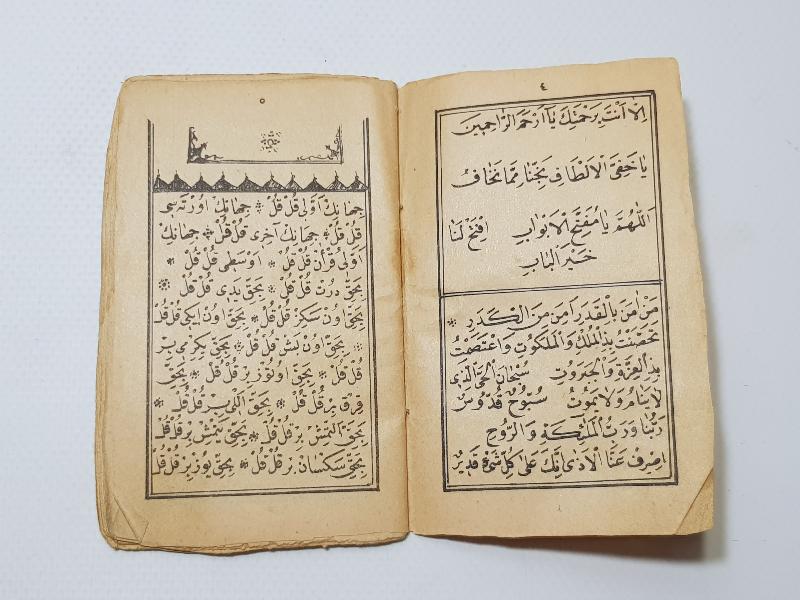 ٤
اِلَّا اَنْتَ بِرَحْمَتِكَ يَآ اَرْحَمَ الرَّاحِمِينَ
يَا خَفِىَّ الْاَلْطَافِ نَجِّنَا مِمَّا نَخَافُ
اَللّٰهُمَّ يَا مُفَتِّحَ الْاَبْوَابِ اِفْتَحْ لَنَا
خَيْرَ الْبَابِ
مَنْ اٰمَنَ بِالْقَدَرِ اَمِنَ مِنَ الْكَدَرِ
تَحَصَّنْتُ بِذِ الْمُلْكِ وَالْمَلَكُوتِ وَاعْتَصَمْتُ
بِذِ الْعِزَّةِ وَالْجَبَرُوتِ سُبْحَانَ الْحَىِّ الَّذِى
لَا يَنَامُ وَلَا يَمُوتُ سُبُّوحٌ قُدُّوسٌ
رَبُّنَا وَرَبُّ الْمَلٰٓئِكَةِ وَالرُّوحِ
اِصْرِفْ عَنَّا الْاَذٰى اِنَّكَ عَلٰى كُلِّ شَىْءٍ قَدِيرٌ
٥
جهانك اَوَّلى قُلْ قُلْ جهانك اورته سى
قُلْ قُلْ جهانك آخرى قُلْ قُلْ جهانك
اَوَّلى قُرْآن قُلْ قُلْ اَوْسَطى قُلْ قُلْ
بحقِّ درت قُلْ قُلْ بحقِّ يدى قُلْ قُلْ
بحقِّ اون سكز قُلْ قُلْ بحقِّ اون ايكى قُلْ قُلْ
بحقِّ اون بش قُلْ قُلْ بحقِّ يكرمى بر
قُلْ قُلْ بحقِّ اوتوز بر قُلْ قُلْ بحقِّ
قرق بر قُلْ قُلْ بحقِّ اللى بر قُلْ قُلْ
بحقِّ آلتمش بر قُلْ قُلْ بحقِّ يتمش بر قُلْ قُلْ
بحقِّ سكسان بر قُلْ قُلْ بحقِّ يوز بر قُلْ قُلْ